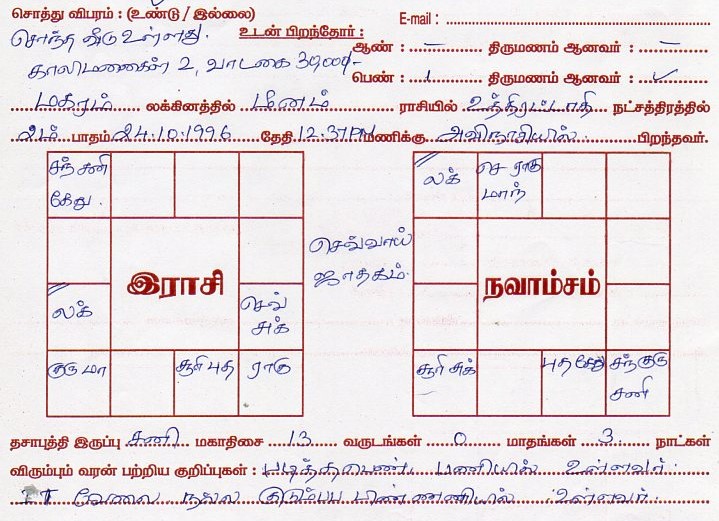 சொத்து விபரம் : (உண்டு / இல்லை) E-mail :
சொந்த வீடு உள்ளது. உடன் பிறந்தோர் :
ஆண் : – திருமணம் ஆனவர் : –
காலிமனைகள் 2, வாடகை
பெண் : 1 திருமணம் ஆனவர் : ✓
மகரம் லக்கினத்தில் மீனம் ராசியில் உத்திரட்டாதி நட்சத்திரத்தில்
2ம் பாதம் 24.10.1996 தேதி 12.37 PM மணிக்கு அவிநாசியில் பிறந்தவர்.
சந் சனி
கேது
லக்
செவ்
சுக்
குரு மா
சூரி புத
ராகு
இராசி
செவ்வாய்
ஜாதகம்.
லக்
செ ராகு
மாந்
நவாம்சம்
சூரி சுக்
புத கேது
சந் குரு
சனி
தசாபுத்தி இருப்பு சனி மகாதிசை 13 வருடங்கள் 0 மாதங்கள் 3 நாட்கள்
விரும்பும் வரன் பற்றிய குறிப்புகள் : படித்த பெண், பணியில் உள்ளவர்
IT வேலை நல்ல குடும்ப பின்னணியில் உள்ளவர்